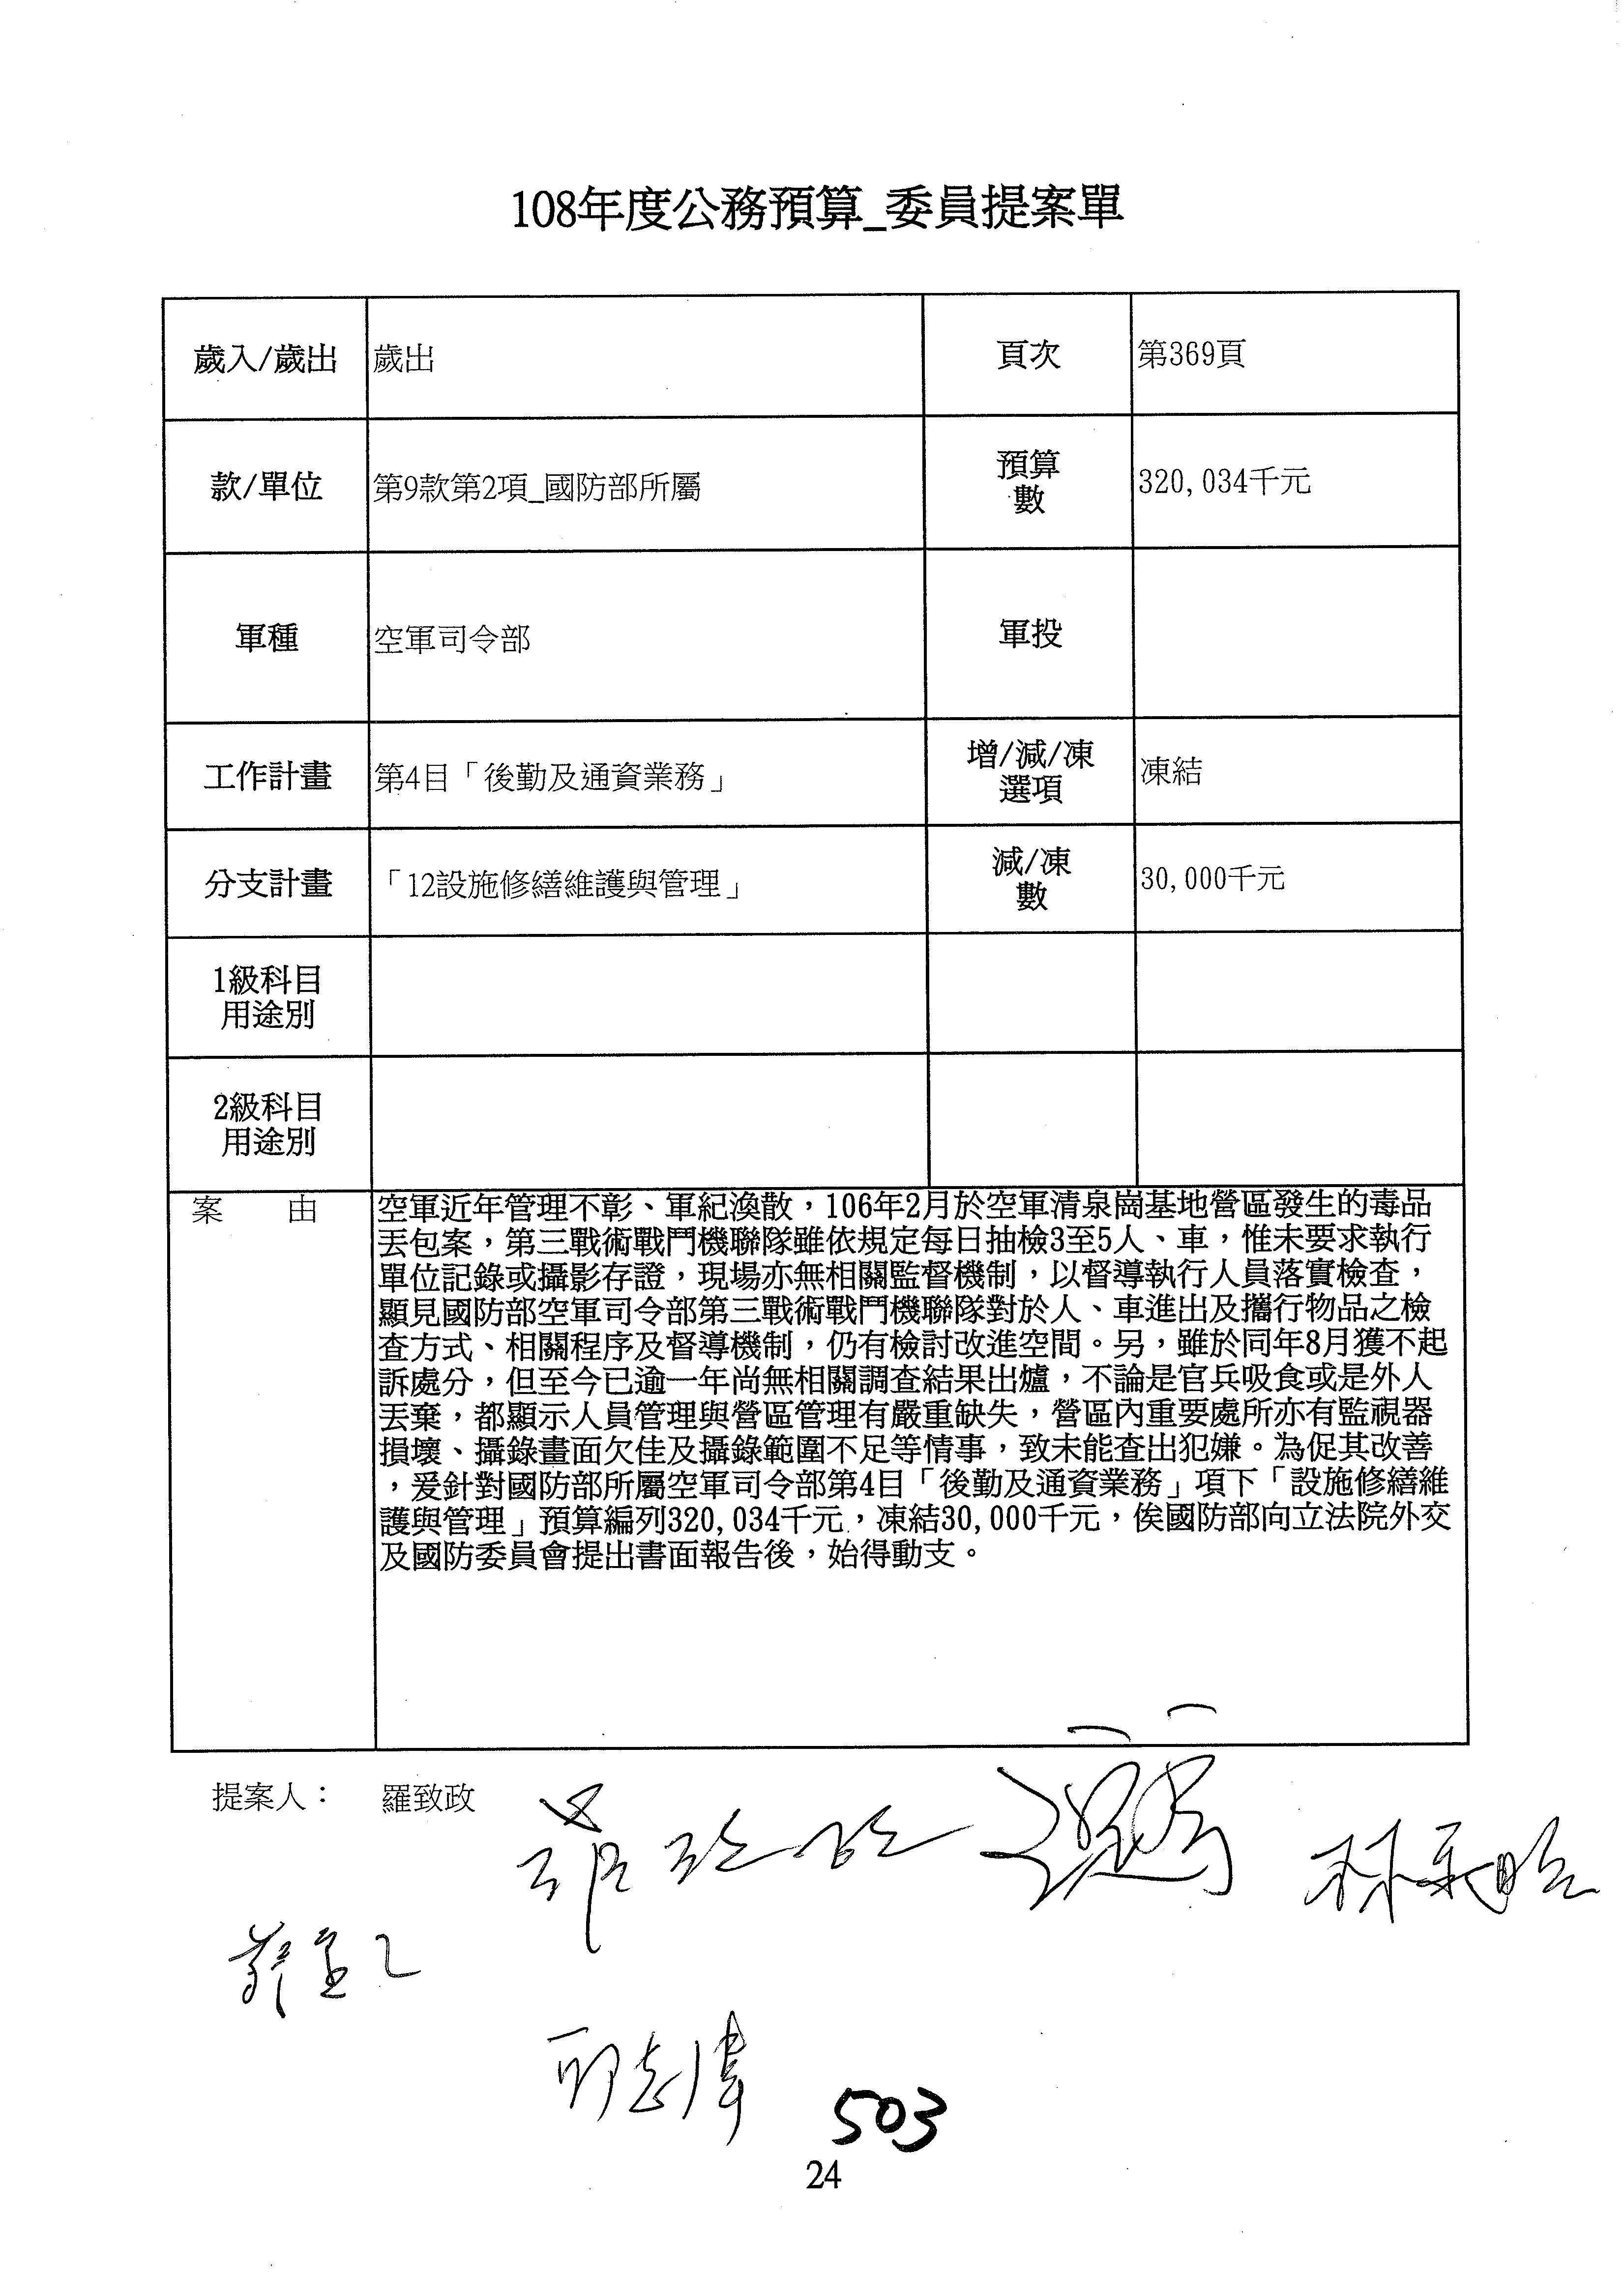 108年度公務預算_委員提案單
歲入/歲出 歲出 頁次 第369頁
款/單位 第9款第2項_國防部所屬 預算 320,034千元
數
軍種 空軍司令部 軍投
工作計畫 第4目「後勤及通資業務」 增/減/凍 凍結
選項
分支計畫 「12設施修繕維護與管理」 減/凍 30,000千元
數
1級科目
用途別
2級科目
用途別
案 由 空軍近年管理不彰、軍紀渙散，106年2月於空軍清泉崗基地營區發生的毒品
丟包案，第三戰術戰鬥機聯隊雖依規定每日抽檢3至5人、車，惟未要求執行
單位記錄或攝影存證，現場亦無相關監督機制，以督導執行人員落實檢查，
顯見國防部空軍司令部第三戰術戰鬥機聯隊對於人、車進出及攜行物品之檢
查方式、相關程序及督導機制，仍有檢討改進空間。另，雖於同年8月獲不起
訴處分，但至今已逾一年尚無相關調查結果出爐，不論是官兵吸食或是外人
丟棄，都顯示人員管理與營區管理有嚴重缺失，營區內重要處所亦有監視器
損壞、攝錄畫面欠佳及攝錄範圍不足等情事，致未能查出犯嫌。為促其改善
，爰針對國防部所屬空軍司令部第4目「後勤及通資業務」項下「設施修繕維
護與管理」預算編列320,034千元，凍結30,000千元，俟國防部向立法院外交
及國防委員會提出書面報告後，始得動支。
提案人： 羅致政
邱志偉
503
24